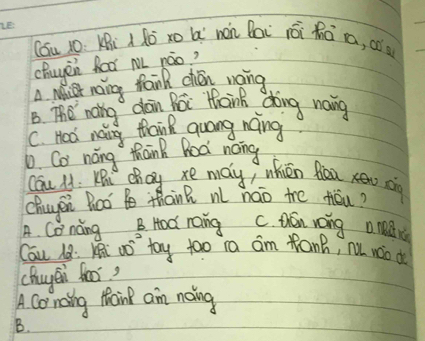 Câu 10: Khi 1 lò xo bị nén lại rồi thả ra, có sự
chuyển hoá NL nào?
A. Nhiệt năng thành điện năng
B. Thế năng đàn hồi thành động năng
C. Hoá năng thành quang năng
D. Cơ năng thành hoá năng
Câu 11: Khi chạy xe máy, nhiên liệu xăng
chuyển hoá từ thành nl nào trc tiêu?
A. Cơ năng B. Hoá năng C. điện năng D. nhiệt năng
Câu 12: Khi vỗ tay tạo ra âm thanh, NL nào đc
chuyển hoá?
A. Cơ năng thành âm năng
B.